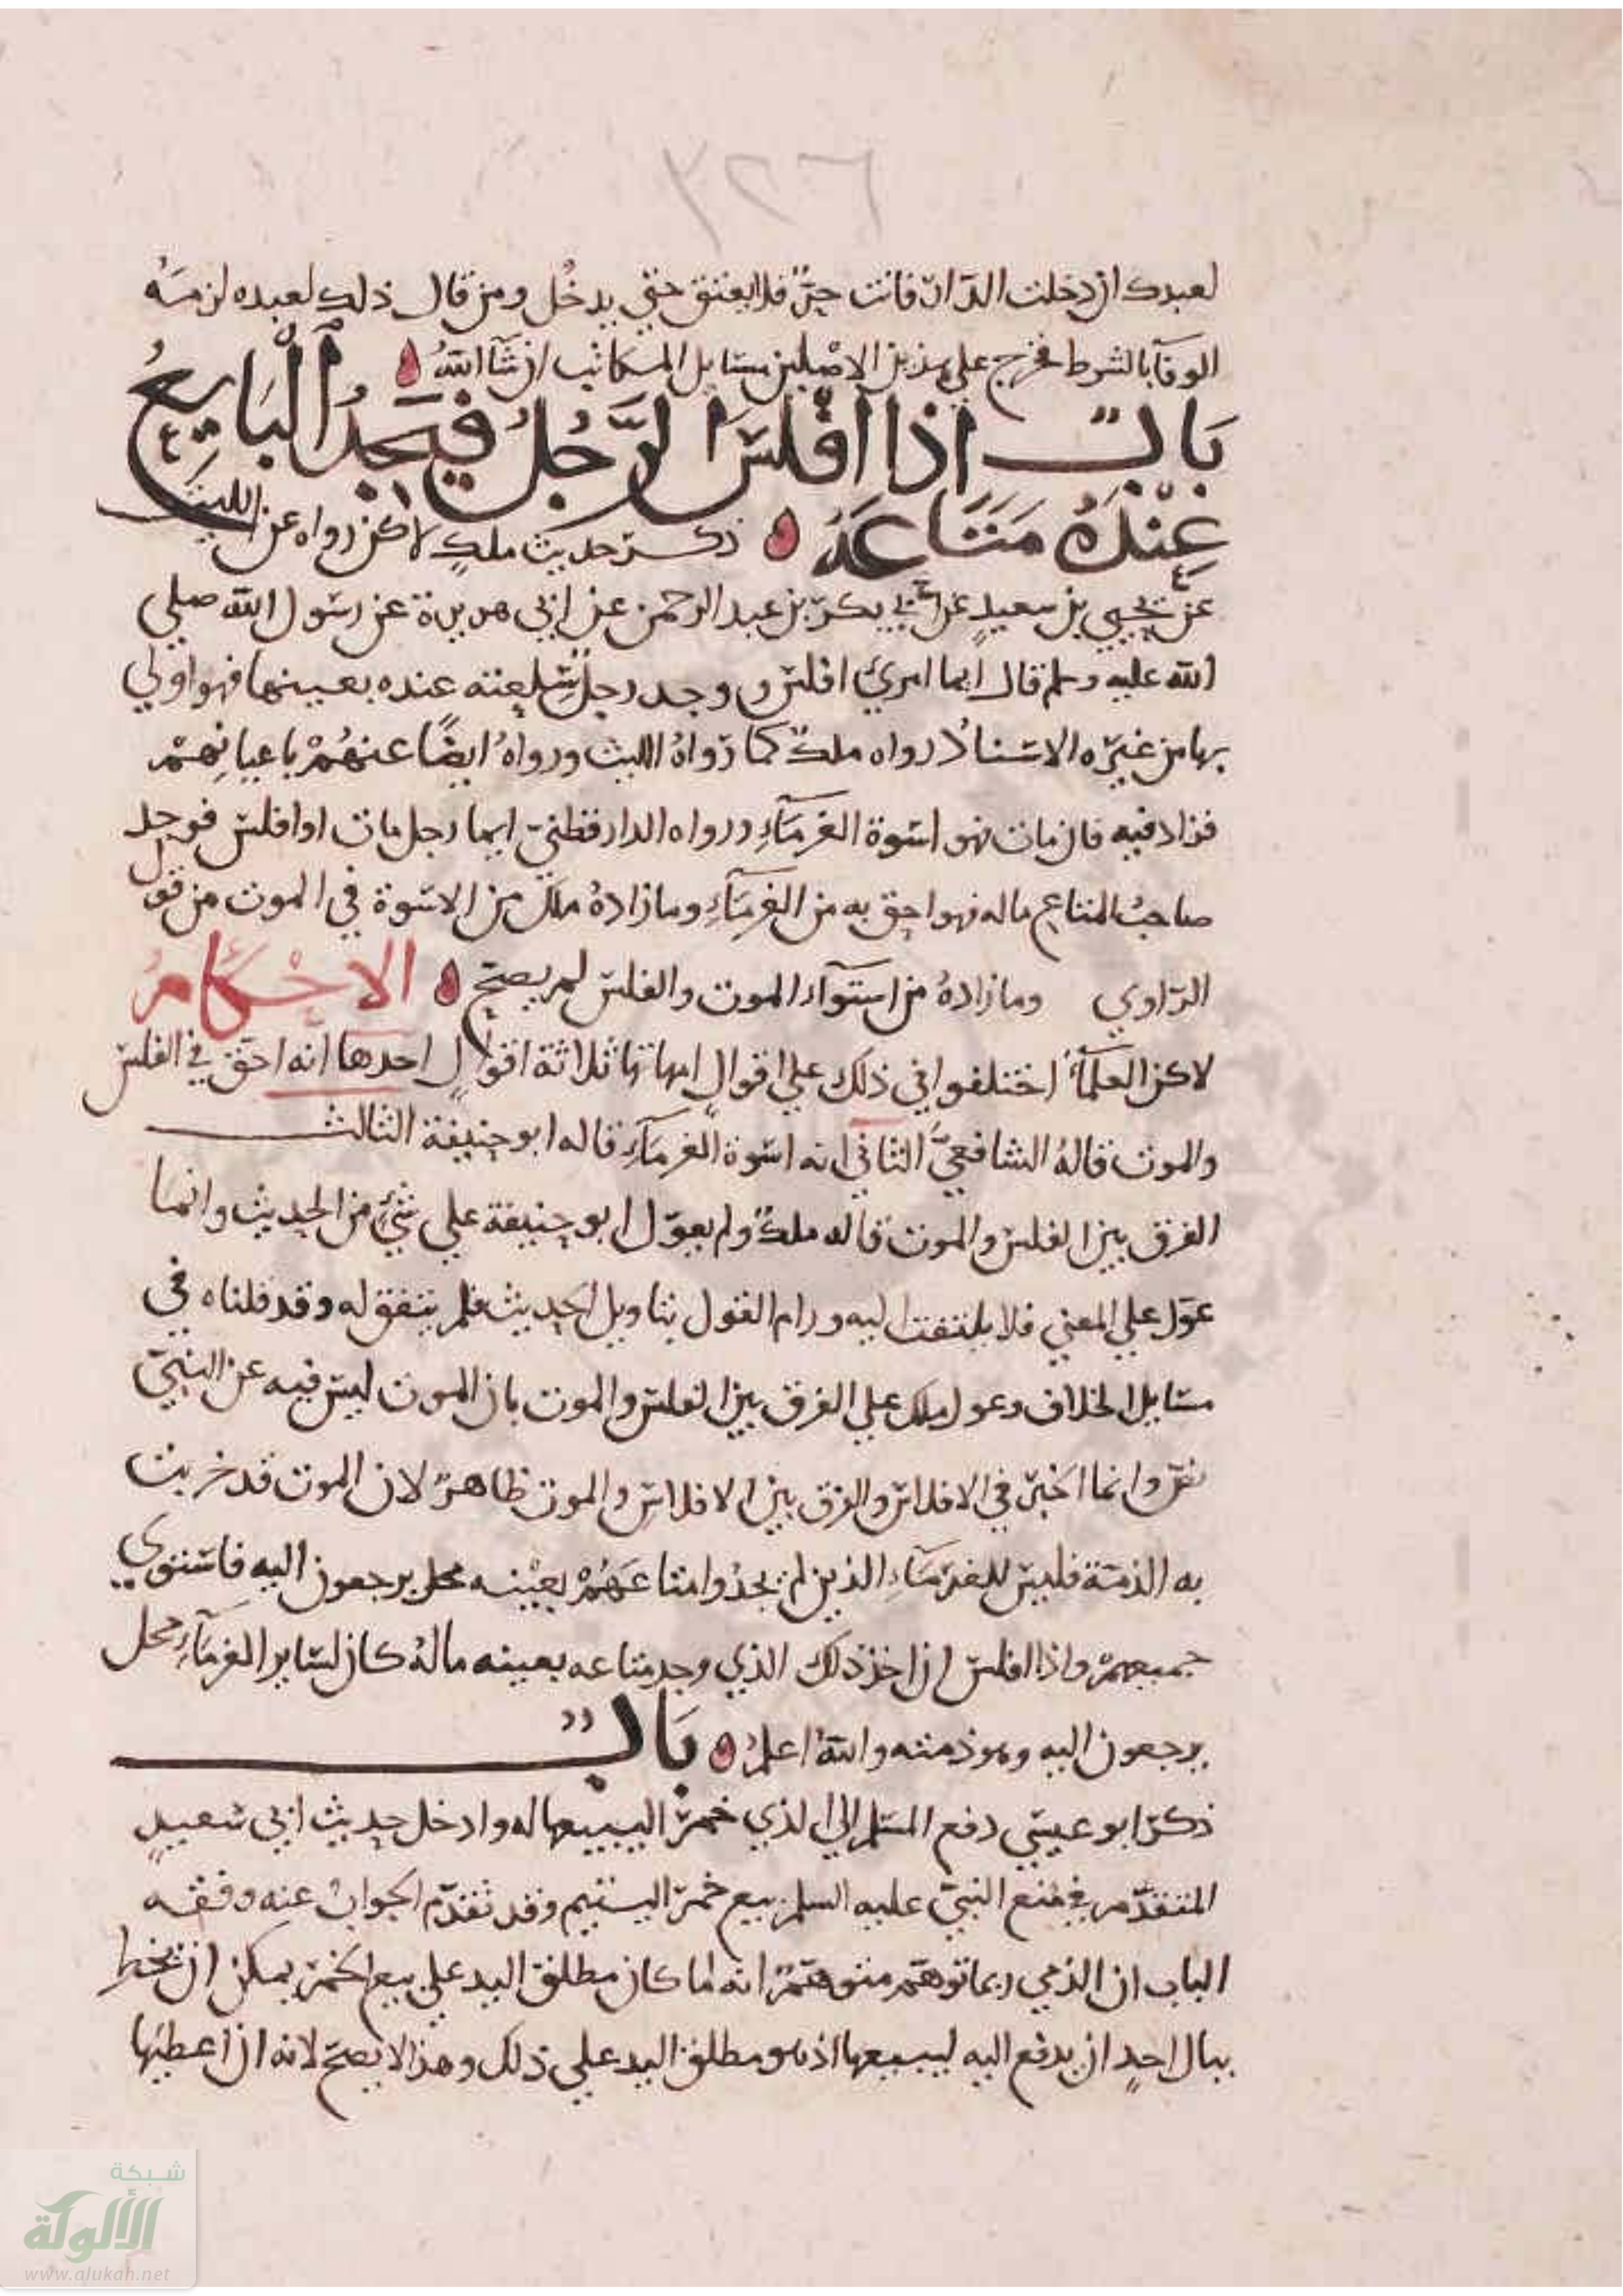 لعبدك ان دخلت الدار ان فانت حر فلا يعتق حتى يدخل ومن قال ذلك لعبده لزمه
الوفآ بالشرط فخرج على هذين الاصلين مسايل المكاتب ان شآ الله
باب اذا افلس الرجل فيجد البايع
عنده متاعه ذكر حديث ملك لاكن رواه عن الليث
عن يحيى بن سعيد عن ابي بكر بن عبد الرحمن عن ابي هريرة عن رسول الله صلى
الله عليه وسلم قال ايما امرئ افلس ووجد رجل سلعته عنده بعينها فهو اولى
بها من غيره الاسناد رواه ملك كما رواه الليث ورواه ايضا عنهم باعيانهم
فزاد فيه فان مات فهو اسوة الغرمآء ورواه الدارقطني ايما رجل مات او افلس فوجد
صاحب المتاع ماله فهو احق به من الغرمآء وما زاده ملك من الاسوة في الموت من قول
الراوي وما زاده من استوآء الموت والفلس لم يصح الاحكام
لاكن العلمآ اختلفوا في ذلك على اقوال امهاتها ثلاثة اقوال احدها انه احق في الفلس
والموت قاله الشافعي الثاني انه اسوة الغرمآء قاله ابو حنيفة الثالث
الفرق بين الفلس والموت قاله ملك ولم يعول ابو حنيفة على شيء من الحديث وانما
عول على المعنى فلا يلتفت اليه ورام القول بتاويل الحديث فلم يتفق له وقد قلناه في
مسايل الخلاف وعول ملك على الفرق بين الفلس والموت بان الموت ليس فيه عن النبي
نص وانما اخبر في الافلاس والفرق بين الافلاس والموت ظاهر لان الموت قد خربت
به الذمة فليس للغرمآء الذين لم يجدوا متاعهم بعينه محل يرجعون اليه فاستوى
جميعهم واذا افلس ان اخذ ذلك الذي وجد متاعه بعينه ماله كان لساير الغرمآء محل
يرجعون اليه وهو ذمته والله اعلم باب
ذكر ابو عيسى دفع المسلم الى الذي خمرا ليبيعها له وادخل حديث ابي سعيد
المتقدم في منع النبي عليه السلم بيع خمر اليتيم وقد تقدم الجواب عنه وفقه
الباب ان الذمي ربما توهم متوهم انه لما كان مطلق اليد على بيع الخمر يمكن ان يخطر
ببال احد ان يدفع اليه ليبيعها اذ هو مطلق اليد على ذلك وهذا لا يصح لانه ان اعطيها
شبكة
الألوكة
www.alukah.net